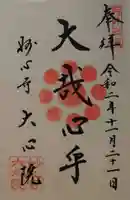 奉拝
令和二年十一月二十一日
大哉心乎
妙心寺
大心院